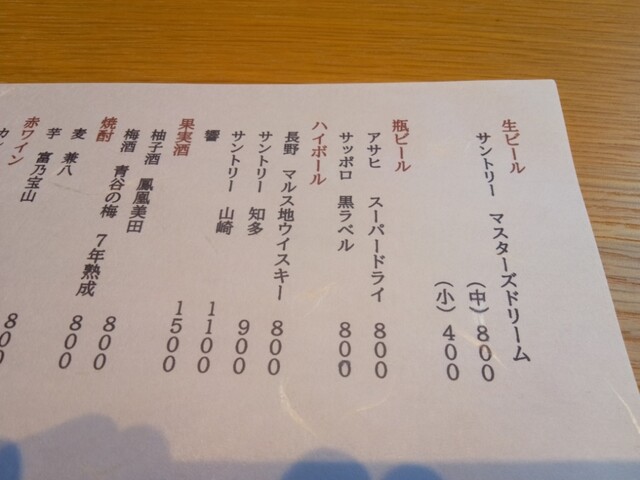 生ビール
サントリー マスターズドリーム
(中) 800
(小) 400
瓶ビール
アサヒ スーパードライ 800
サッポロ 黒ラベル 800
ハイボール
長野 マルス地ウイスキー 800
サントリー 知多 900
サントリー 山崎 1100
響 1500
果実酒
柚子酒 鳳凰美田 800
梅酒 青谷の梅 7年熟成 800
焼酎
麦 兼八 800
芋 富乃宝山
赤ワイン